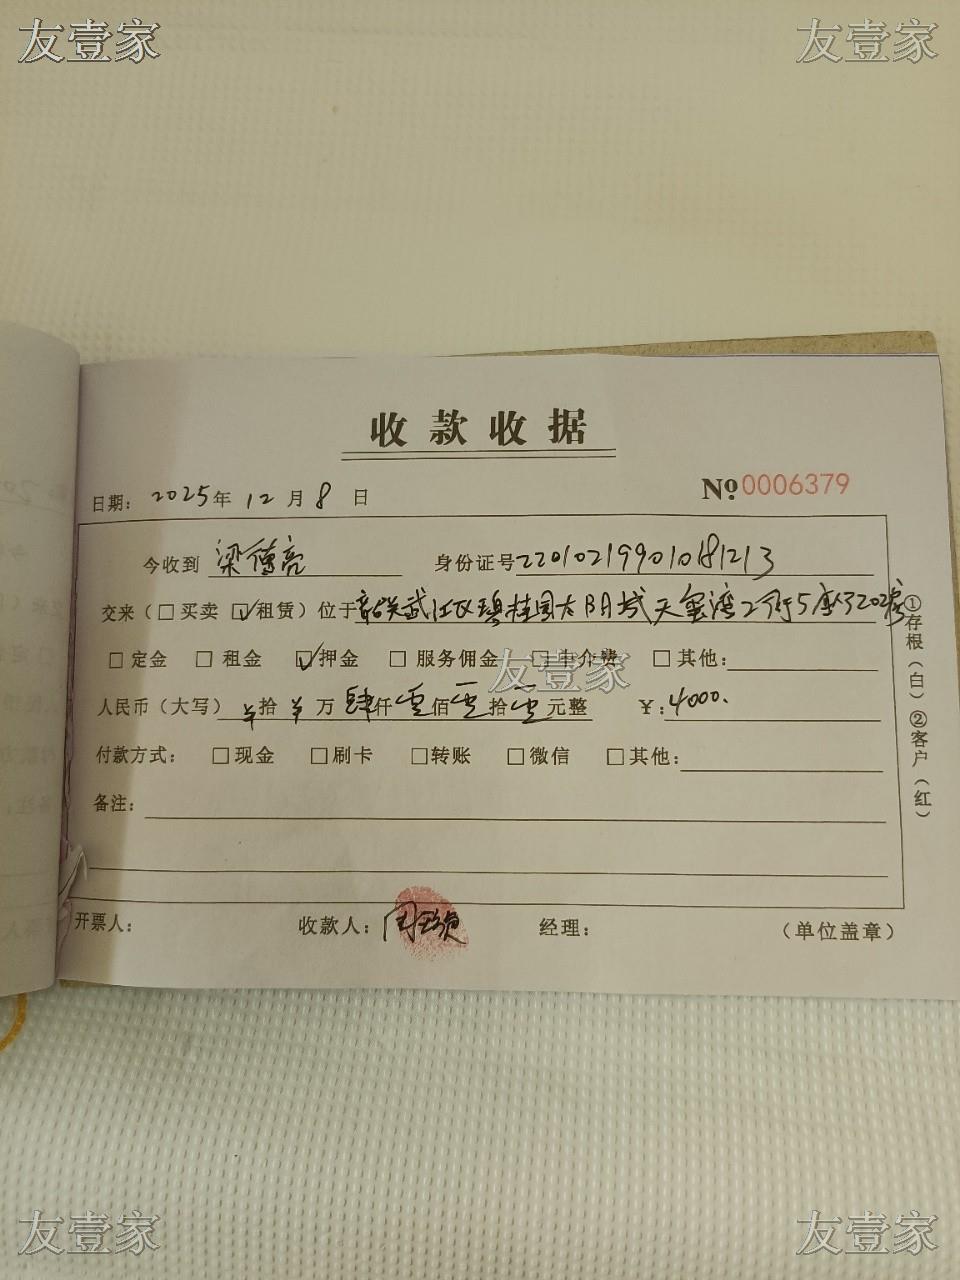 友壹家 友壹家
收款收据
日期: 2025年 12月 8日 No 0006379
今收到 梁傳亮 身份证号 220102199010181213
交来(□买卖 ☑租赁)位于 韶关武江区碧桂园太阳城天玺湾2街5座 202房
□定金 □租金 ☑押金 □服务佣金 □中介费 □其他:
友壹家
人民币(大写) 拾 万 肆仟零佰零拾零元整 ¥:4000.
付款方式: □现金 □刷卡 □转账 □微信 □其他:
备注:
①存根(白)②客户(红)
开票人: 收款人: 经理: (单位盖章)
友壹家 友壹家